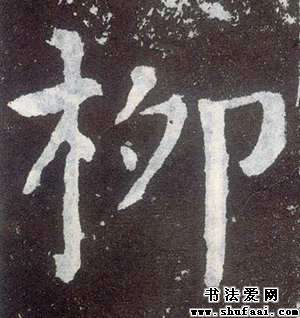 柳
书法爱网
www.shufaai.com